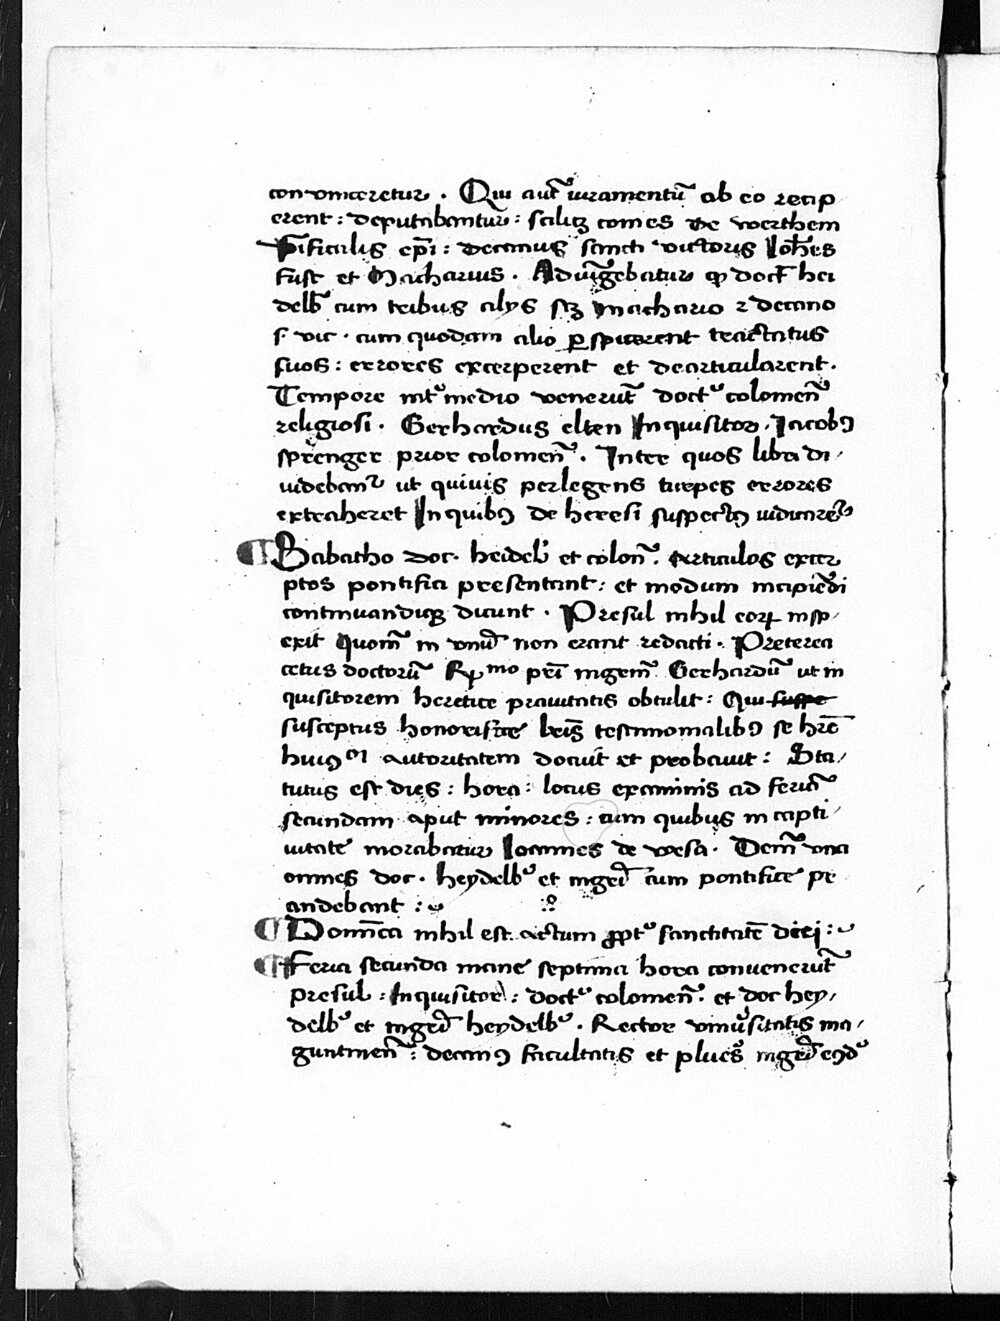 conuinceretur . Qui aut̃ iuramentū ab eo recip
erent : deputabantur : scilicꝫ comes de werthem
Fiscalis ep̃i : decanus sancti victoris Ioh̃es
fust et Macharius . Adiūgebatur ꝙ doct̃ hei
delb̃ cum tribus alys scꝫ machario ⁊ decano
s . vic . cum quodam alio ꝑspicerent tractatus
suos : errores excerperent et dearticularent .
Tempore int᷒ medio venerūt doct᷒ colonieñ
religiosi . Gerhardus elten Inquisitor . Jacobꝰ
sprenger prior colonieñ . Inter quos libri di /
uidebant᷒ ut quiuis perlegens turpes errores
extraheret In quibꝰ de heresi suspectꝰ iudicaret᷒
Sabatho doc . heidel᷒ et coloñ . articulos excer
ptos pontifici presentant : et modum incipiēdi
continuandiqꝫ dicunt . Presul nihil eoꝝ insp /
exit Quoniā in vnū non erant redacti . Preterea
cetus doctorū R mo pr̃i ingeniū Gerhardū ut in
quisitorem heretice prauitatis obtulit : Qui suspe
susceptus honorifice br̃is testimonialibꝰ se hr̃e
huiꝰmõi autoritatem docuit et probauit : Sta /
tutus est dies : hora : locus examinis ad feriā
secundam aput minores : cum quibus in capti /
uitate morabatur Ioannes de wesa . Deniq̃ vna
omnes doc . heydelb᷒ et mgr̃i cum pontifice pe
andebant :
Dominica nihil est actum ꝓpt᷒ sanctitatē diei :
Feria secunda mane septima hora conuenerūt
presul : Inquisitor : doct᷒ colonieñ . et doc hey /
delb᷒ et mgr̃i heydelb᷒ . Rector vniu᷒sitatis ma /
guntineñ : decanꝰ facultatis et plures mgr̃i eiꝰd᷒